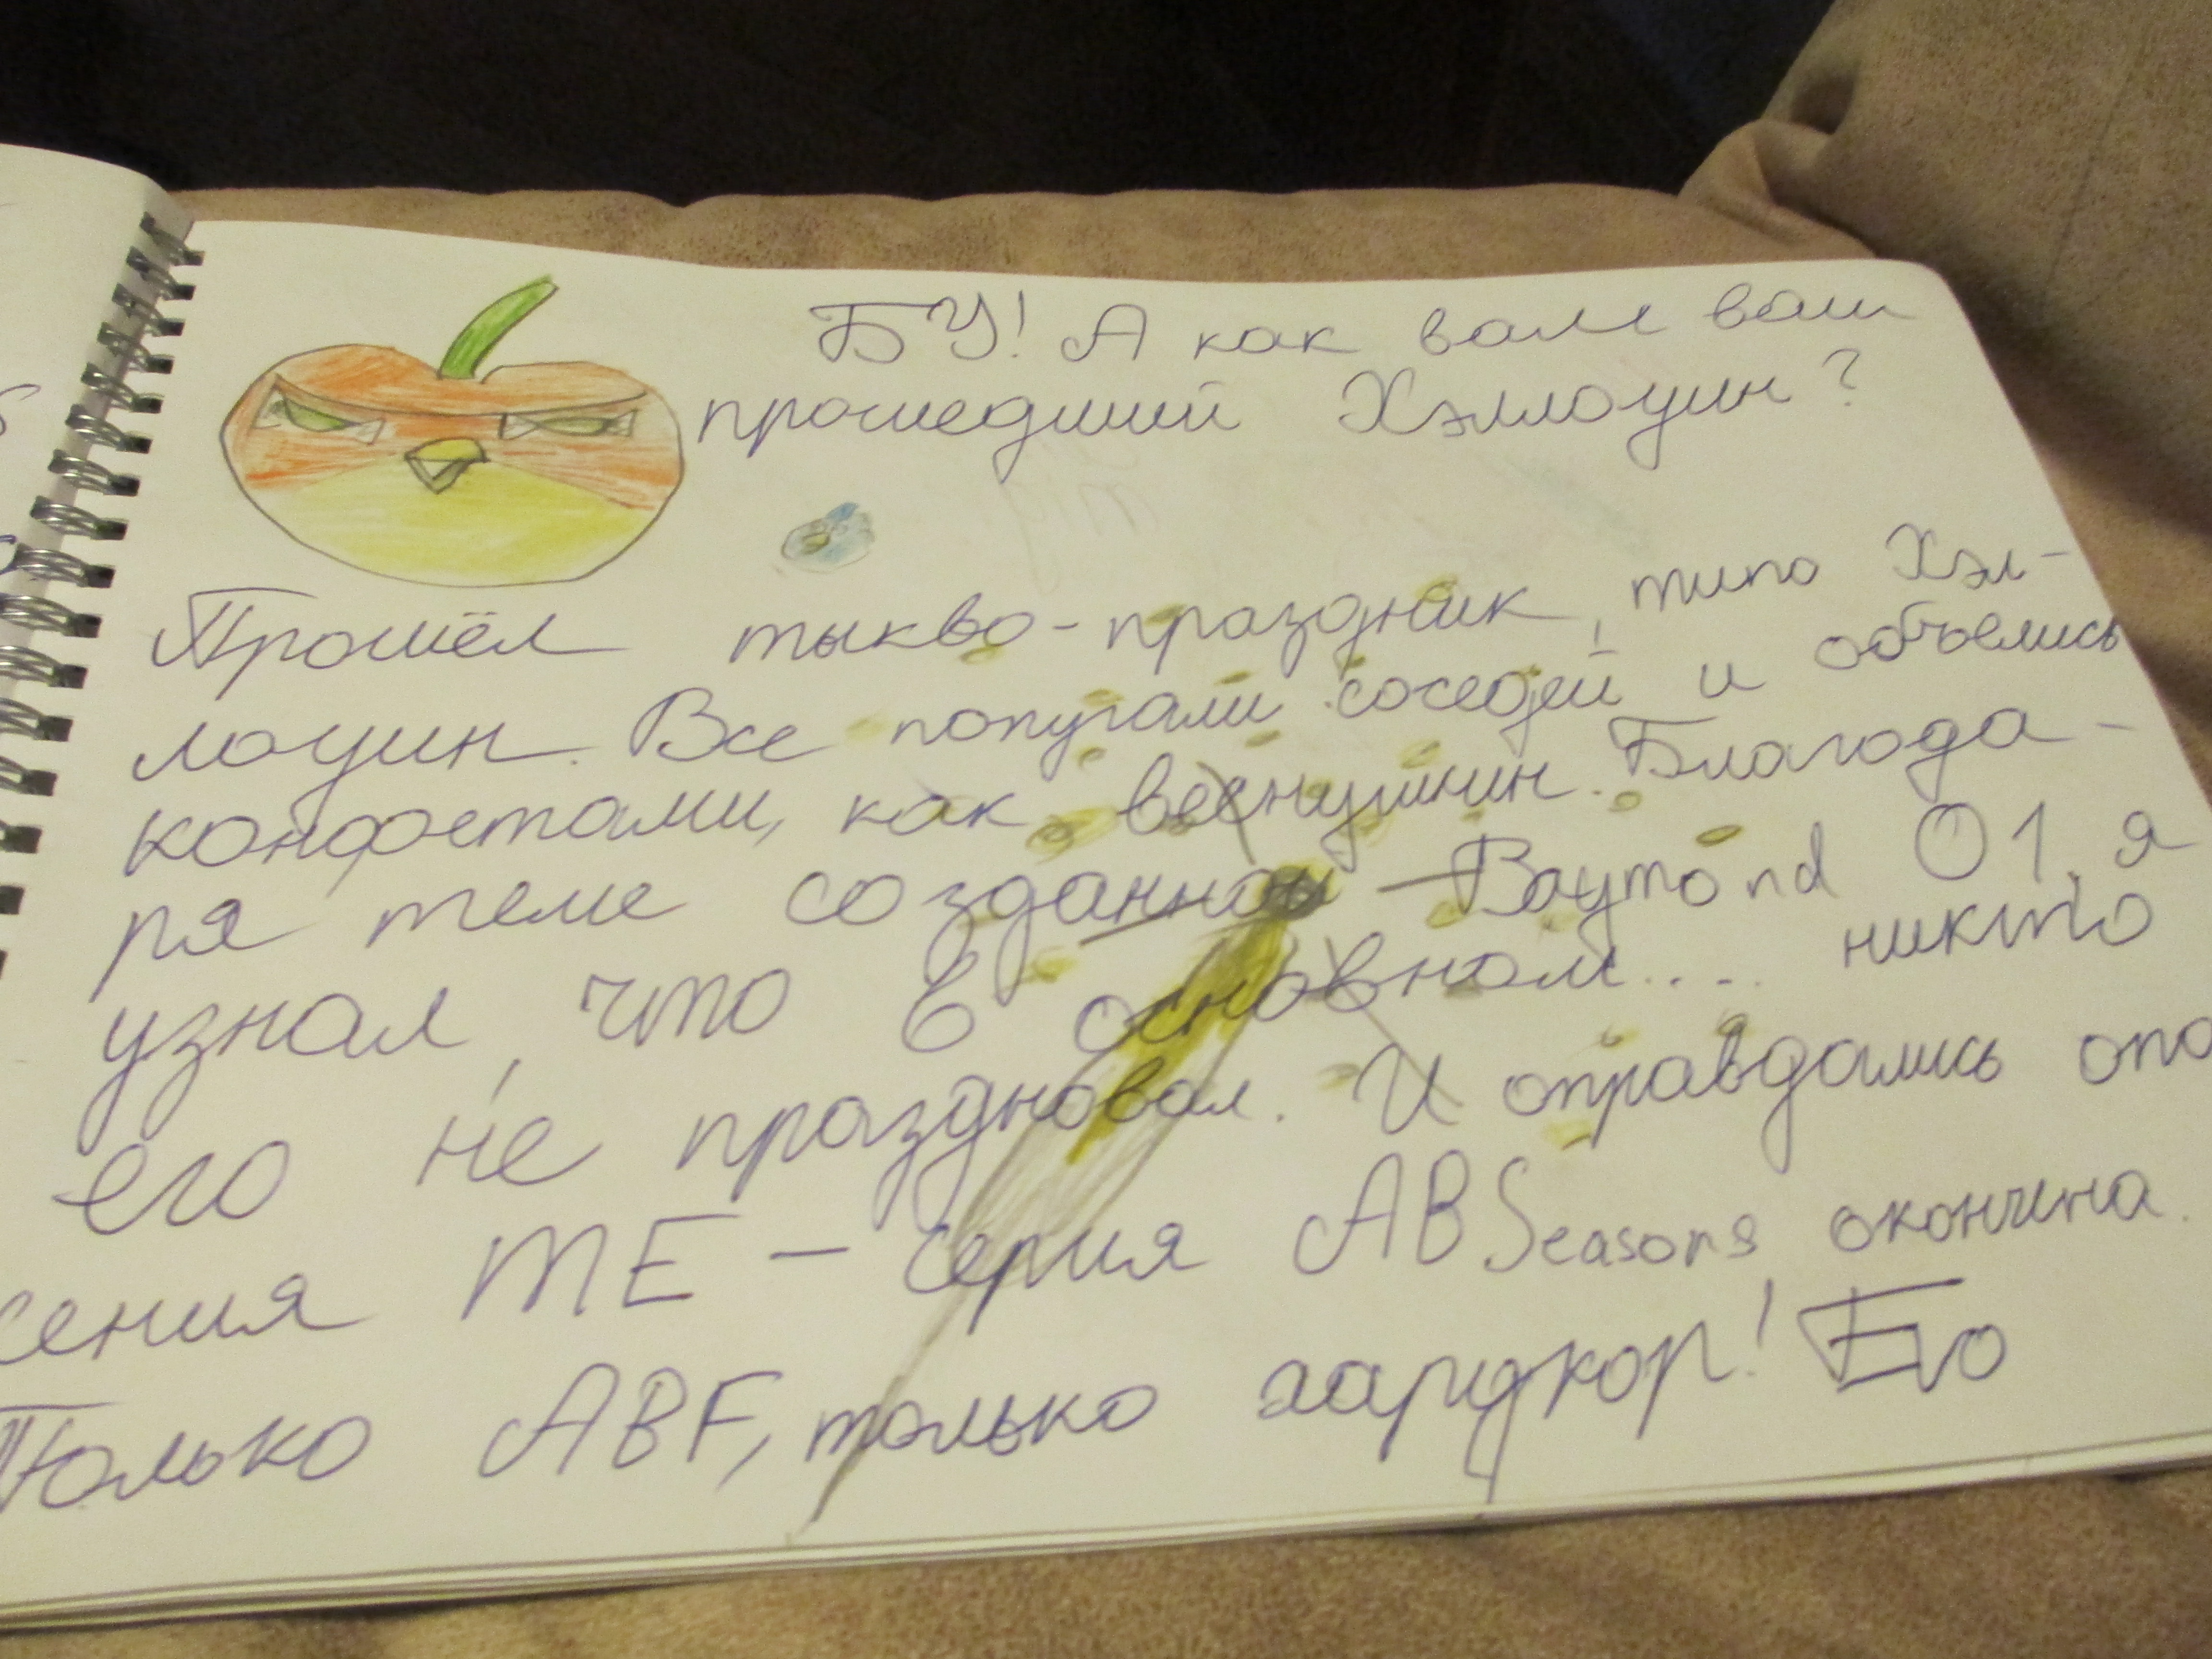 БУ! А как вам ваш
прошедший Хэллоуин?
Прошёл тыкво-праздник, типа Хэл-
лоуин. Все попугали соседей и объелись
конфетами, как веснушкин. Благода-
ря теме созданной - Raymond 01, я
узнал, что в основном... никто
его не праздновал. И оправдались опа
сения ME - серия AB Seasons окончена.
Только ABF, только хардкор! Его